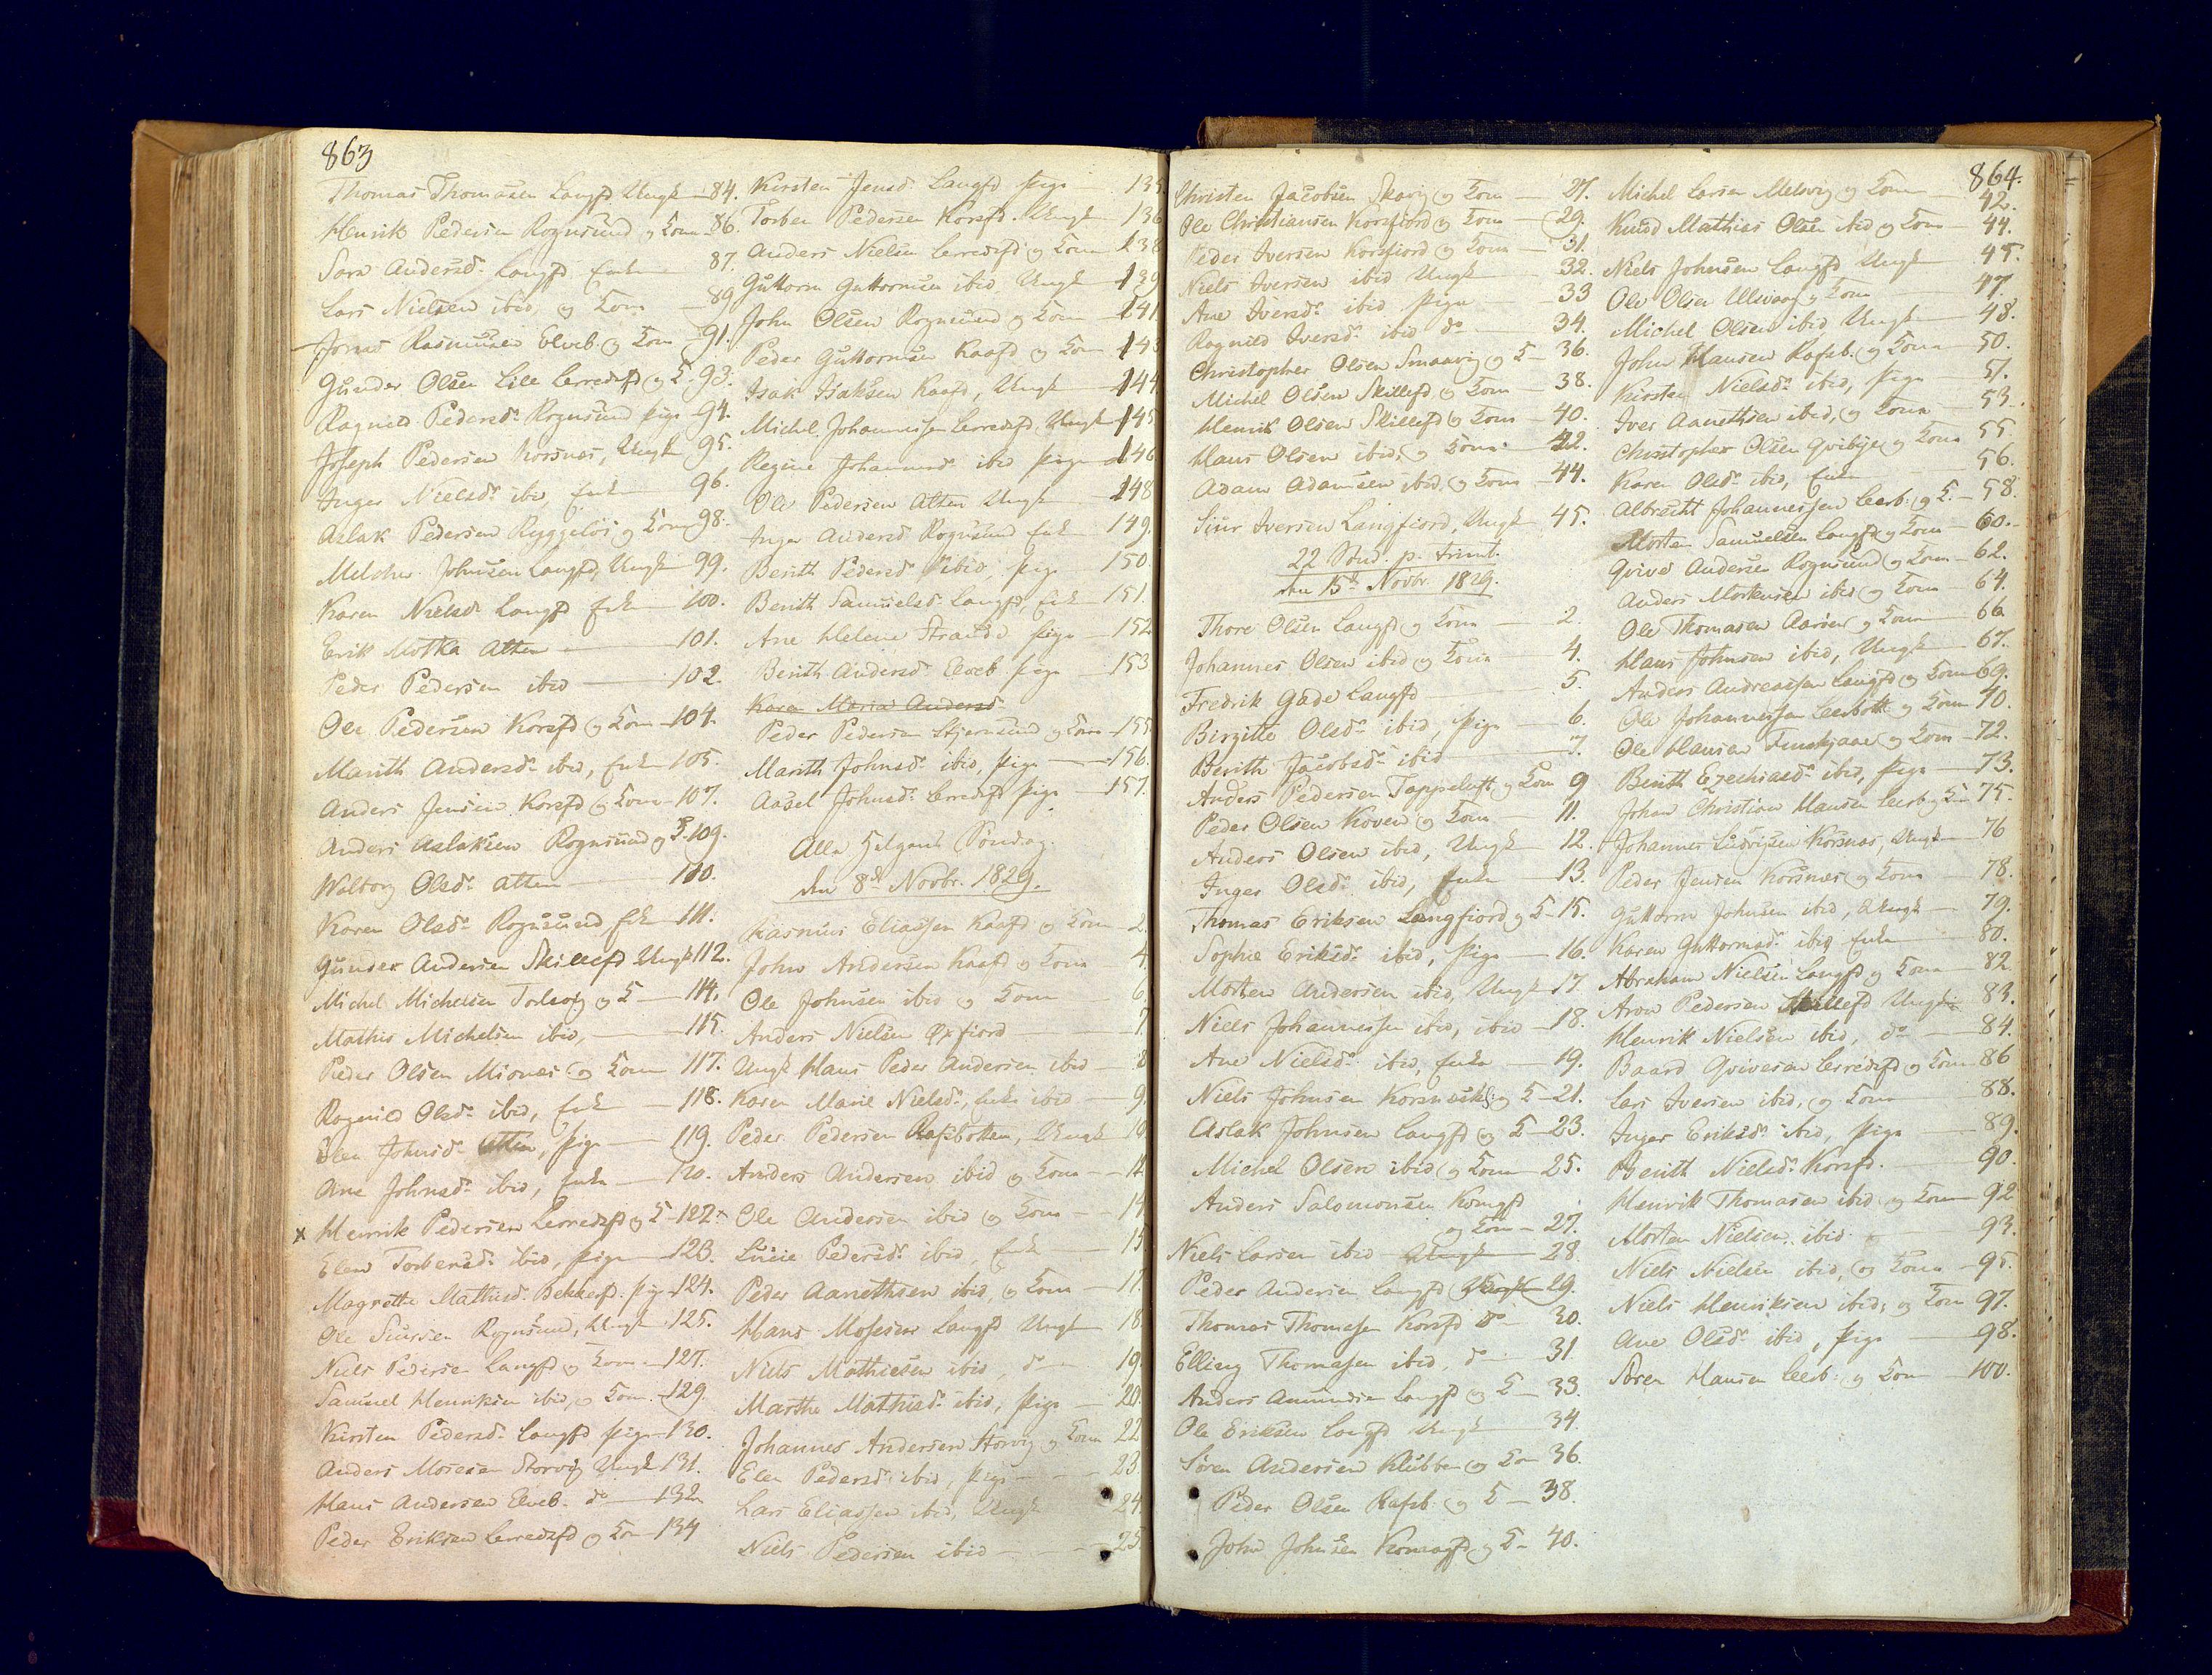 863
Thomas Thomasen Langfd Ungk 84.
Henrik Pedersen Rognsund og Kone 86.
Sara Andersd. Langfd Enke 87.
Lars Nielsen ibid, og Kone 89
Jonas Rasmusen Elveb. og Kone 91.
Gunder Olsen Lille Lerredsfd og K. 93.
Ragnild Pedersd. Rognsund pige 94.
Joseph Pedersen Korsnæs, Ungk 95.
Inger Nielsd. ibid, Enke 96.
Aslak Pedersen Ryggeløs og Kone 98.
Melcher Johnsen Langfd, Ungk 99.
Karen Nielsd. Langfd Enke 100.
Erik Motka Alten 101.
Peder Pedersen ibid 102.
Ole Pedersen Korsfd og Kone 104.
Marith Andersd. ibid, Enke 105.
Anders Jensen Korsfd og Kone 107.
Anders Aslaksen Rognsund og K. 109.
Walborg Olsd. Alten 110.
Karen Olsd. Rognsund Enke 111.
Gunder Andersen Skillefd Ungk 112.
Michel Michelsen Talvig og K 114.
Mathis Michelsen ibid, 115.
Peder Olsen Mionæs og Kone 117.
Ragnild Olsd. ibid, Enke 118.
Elen Johnsd. Alten, pige 119.
Ane Johnsd. ibid, Enke 120.
x Henrik Pedersen Lerredsfd og K 122.
Elen Torbensd. ibid, pige 123.
Magrethe Mathisd. Bekkerfd. pig 124.
Ole Siursen Rognsund, Ungk 125.
Niels Pedersen Langfd og Kone 127.
Samuel Henriksen ibid, og Kone 129.
Kirsten Pedersd. Langfd pige 130.
Anders Mosesen Storvig Ungk 131.
Hans Andersen Elveb. do 132
Peder Eriksen Lerredsfd og Kone 134
Kirsten Jensd. Langfd pige 135
Torben Pedersen Korsfd. Ungk 136
Anders Nielsen Lerredsfd og Kone 138
Guttorm Guttormsen ibid, Ungk 139
John Olsen Rognsund og Kone 141
Peder Guttormsen Kaafd og Kone 143
Isak Isaksen Kaafd, Ungk 144
Michel Johannessen Lerredsfd. Ungk 145
Regine Johannesd. ibid pige 146
Ole Pedersen Alten Ungk 148
Inger Andersd Rognsund Enk 149.
Berith Pedersd. ibid, pige 150
Berith Samuelsd. Langfd, Enk 151.
Ane Helene Strand pige 152
Berith Andersd. Elveb. pige 153
Karen Maria Andersd.
Peder Pedersen Stjernsund og Kone 155
Marith Johnsd. ibid, pige 156.
Aasel Johnsd. Lerredsfd pige 157.
Alle Helgens Søndag.
den 8de Novbr. 1829.
Rasmus Eliassen Kaafd og Kone 2.
John Andersen Kaafd og Kone 4.
Ole Johnsen ibid og Kone 6.
Anders Nielsen Øxfiord 7
Ungk Hans Peder Andersen ibid 8
Karen Marie Nielsd., Enke ibid 9
Peder Pedersen Rafsbotten, Ungk 10
Anders Andersen ibid og Kone 12
Ole Andersen ibid og Kone 14
Lucie Pedersd. ibid, Enke 15
Peder Aanethsen ibid, og Kone 17.
Hans Mosesen Langfd Ungk 18
Niels Mathiesen ibid, do 19
Marthe Mathisd. ibid, pige 20.
Johannes Andersen Storvig og Kone 22
Elen Pedersd. ibid, pige 23.
Lars Eliassen ibid, Ungk 24.
Niels Pedersen ibid 25
864.
Christen Jacobsen Skavig og Kone 27.
Ole Christiansen Korsfiord og Kone 29.
Peder Iversen Korsfiord og Kone 31.
Niels Iversen ibid Ungk 32.
Ane Iversd. ibid pige 33
Ragnild Iversd. ibid do 34.
Christopher Olsen Smaavig og K 36.
Michel Olsen Skillefd, og Kone 38.
Henrik Olsen Skillefd og Kone 40.
Hans Olsen ibid, og Kone 42.
Adam Adamsen ibid, og Kone 44.
Siur Iversen Langfiord, Ungk 45.
22 Sønd. p. trinit.
den 15de Novbr. 1829.
Thore Olsen Langfd og Kone 2.
Johannes Olsen ibid og Kone 4.
Fredrik Gade Langfd 5.
Birgitte Olsd. ibid, pige 6.
Berith Jacobsd. ibid 7.
Anders Pedersen Tappeluft og Kone 9
Peder Olsen Koven og Kone 11.
Anders Olsen ibid, Ungk 12.
Inger Olsd. ibid, Enke 13.
Thomas Eriksen Langfiord og K 15.
Sophie Eriksd. ibid, pige 16.
Morten Andersen ibid, Ungk 17.
Niels Johannessen ibid, ibid 18.
Ane Nielsd. ibid, Enke 19.
Niels Johnsen og K 21.
Aslak Johnsen Langfd og K 23.
Michel Olsen ibid og Kone 25.
Anders Salomonsen Komagfd
og Kone 27.
Niels Larsen ibid Ungk 28.
Peder Andersen Langfd Ungk 29.
Thomas Thomasen Korsfd do 30.
Elling Thomasen ibid, do 31.
Anders Amundsen Langfd og K 33.
Ole Eriksen Langfd Ungk 34.
Søren Andersen Klubben og Kone 36.
Peder Olsen Rafsb. og K 38.
John Johnsen Komagfd og K 40.
Michel Larsen Melsvig og Kone 42.
Knud Mathias Olsen ibid og Kone 44.
Niels Johnsen Langfd Ungk 45.
Ole Olsen Ulsvaag og Kone 47.
Michel Olsen ibid, Ungk 48.
John Hansen Rafsb. og Kone 50.
Kirsten Nielsd. ibid, pige 51.
Iver Aanethsen ibid, og Kone 53.
Christopher Olsen Qvibye og Kone 55
Karen Olsd. ibid, Enke 56.
Albrecht Johannessen Leerb. og K. 58.
Morten Samuelsen Langfd og Kone 60.
Qvived Andersen Rognsund og Kone 62.
Anders Mortensen ibid og Kone 64.
Ole Thomasen Aarøen og Kone 66
Hans Johnsen ibid, Ungk 67.
Anders Andreassen Langfd og Kone 69.
Ole Johannessen Leerbott og Kone 70.
Ole Hansen og Kone 72.
Berith Ezechiasd. ibid, pige 73.
Johan Christian Hansen Leerb og Kone 75.
Johannes Ludvigsen Korsnæs, Ungk 76
Peder Jensen Korsnæs og Kone 78.
Guttorm Johnsen ibid, Ungk 79.
Karen Guttormsd. ibid Enke 80.
Abraham Nielsen Langfd og Kone 82
Aron Pedersen Skillefd Ungk 83.
Henrik Nielsen ibid, do 84.
Baard Qvivesen Lerredsfd og Kone 86
Lars Iversen ibid, og Kone 88.
Inger Eriksd. ibid, pige 89.
Berith Nielsd. Korsfd. 90.
Henrik Thomasen ibid og Kone 92
Morten Nielsen ibid. 93.
Niels Nielsen ibid, og Kone 95.
Niels Henriksen ibid, og Kone 97.
Ane Olsd. ibid, pige 98.
Søren Hansen Leerb. og Kone 100.